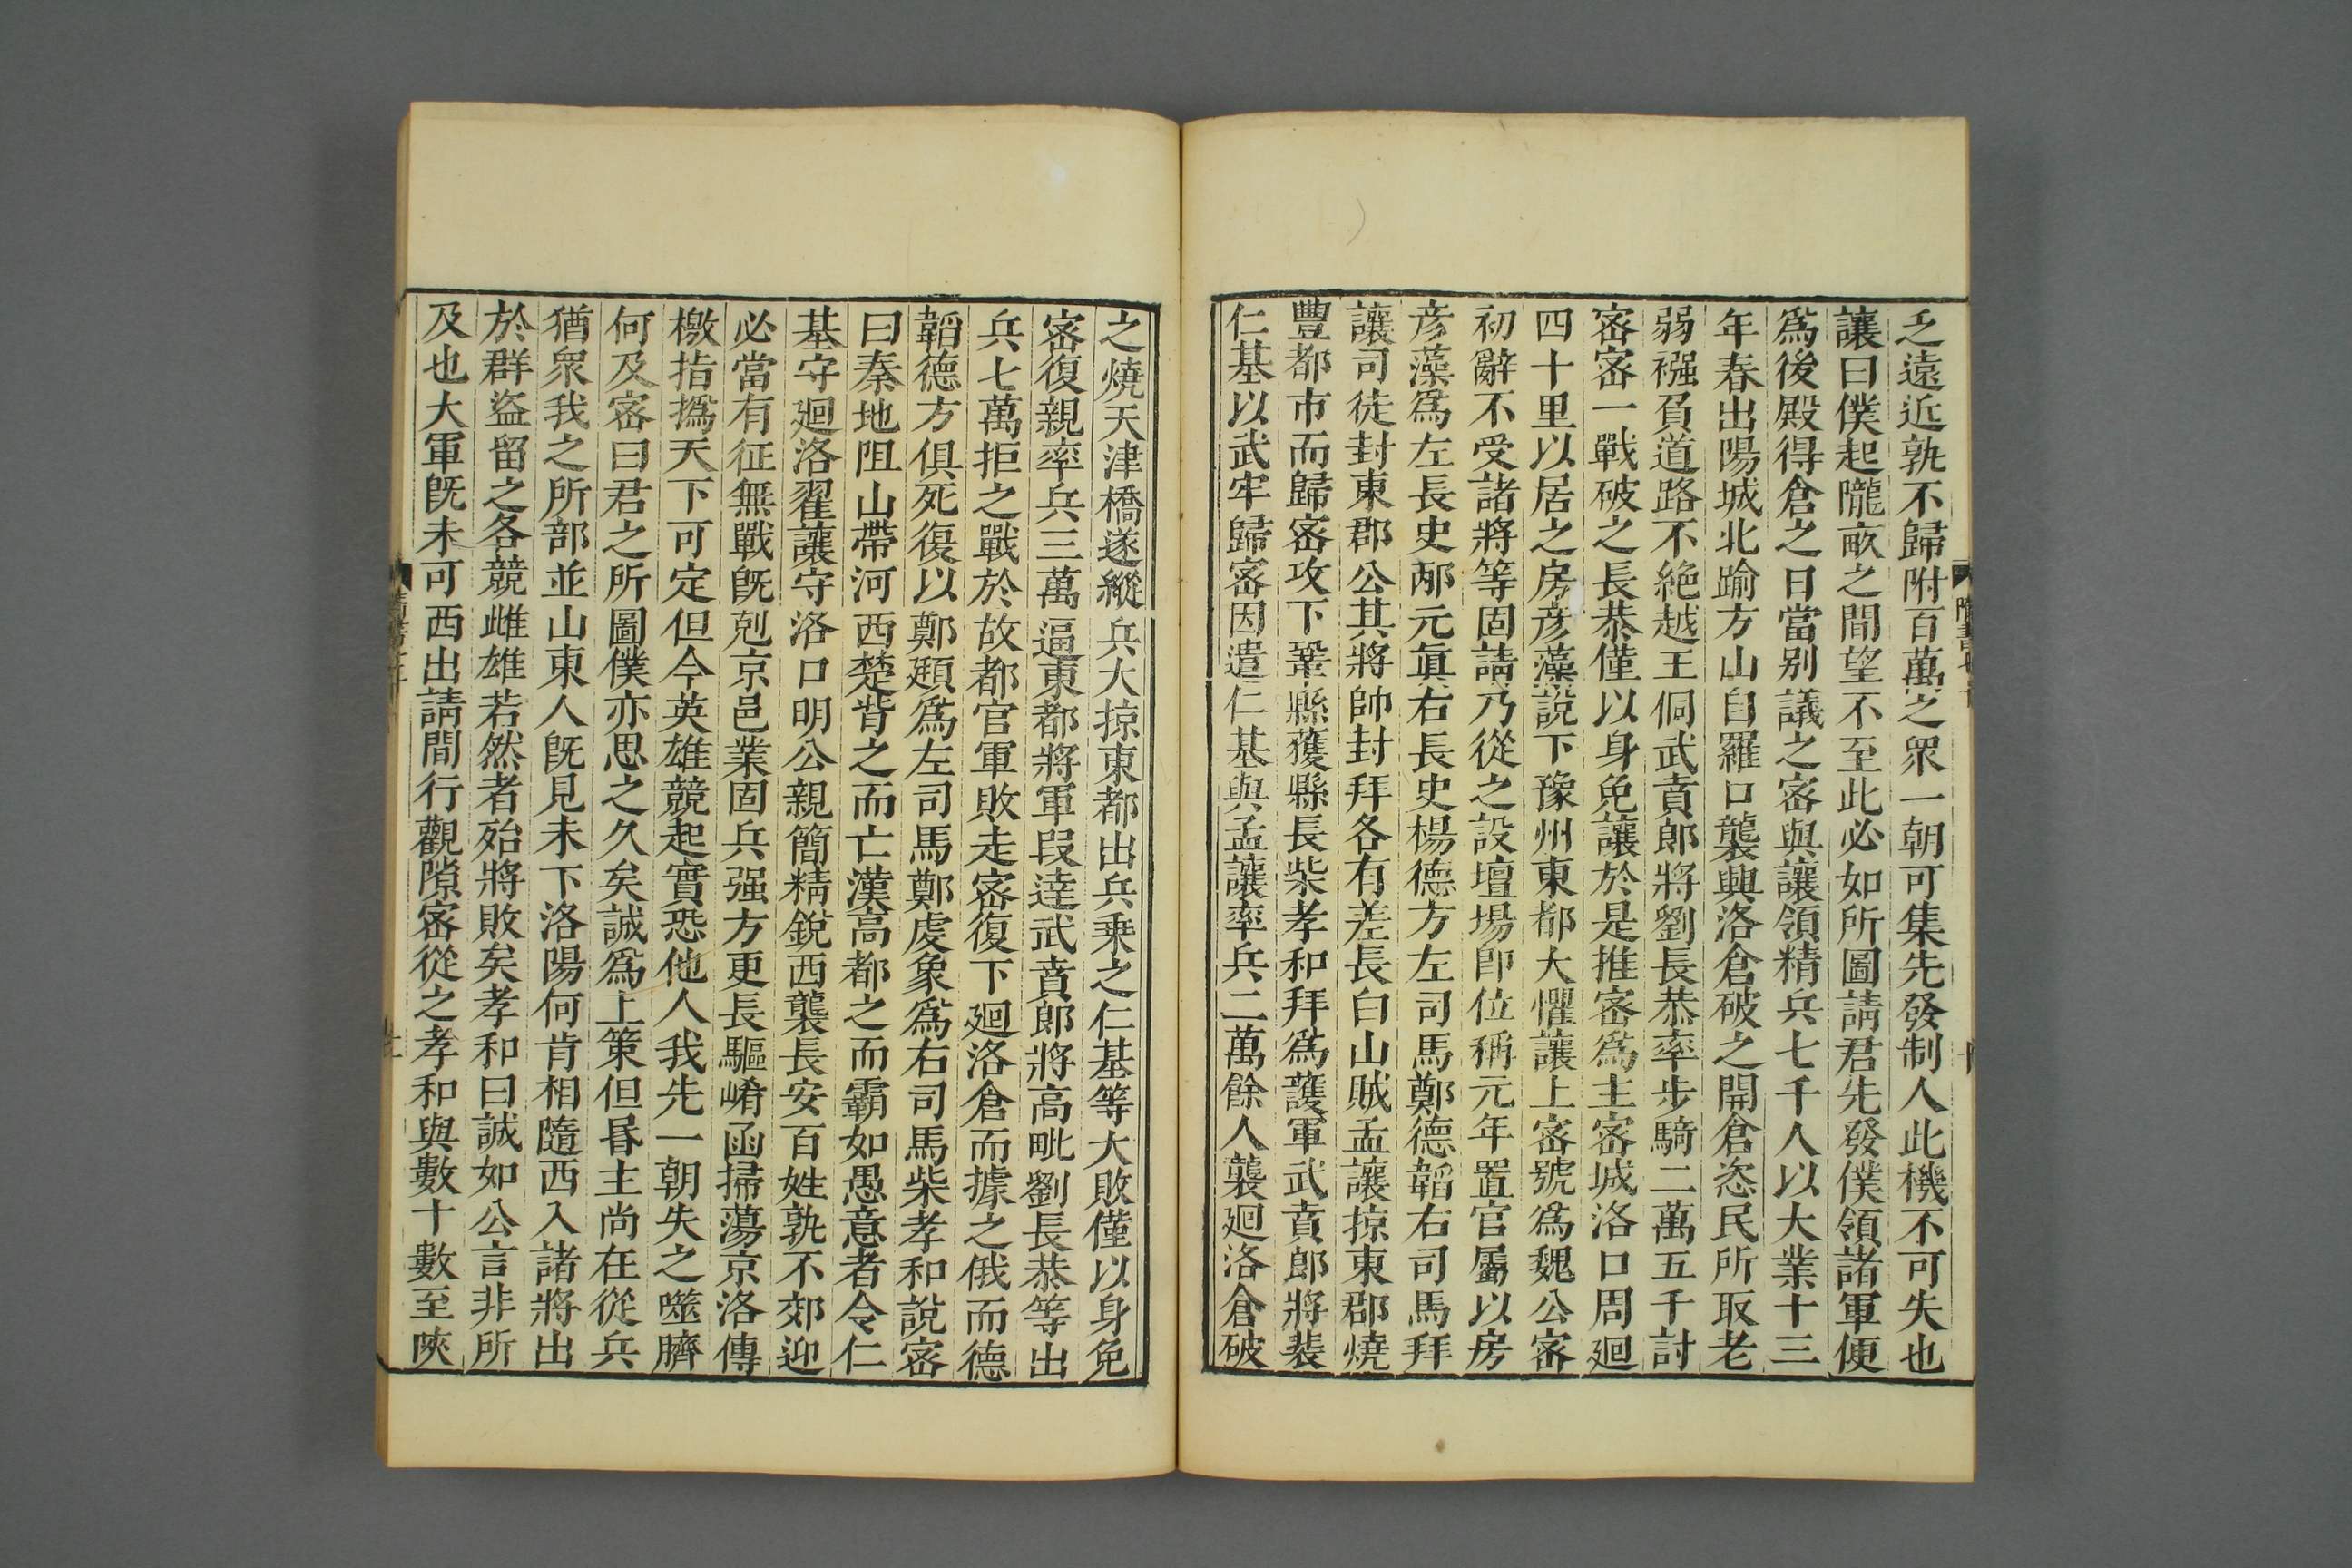 之遠近孰不歸附百萬之衆一朝可集先發制人此機不可失也
讓曰僕起隴畝之間望不至此必如所圖請君先發僕領諸軍便
爲後殿得倉之日當别議之宻與讓領精兵七千人以大業十三
年春出陽城北踰方山自羅口襲興洛倉破之開倉恣民所取老
弱襁負道路不絶越王侗武賁郎將劉長恭率步騎二萬五千討
宻宻一戰破之長恭僅以身免讓於是推宻爲主宻城洛口周廻
四十里以居之房彦藻說下豫州東都大懼讓上宻號爲魏公宻
初辭不受諸將等固請乃從之設壇場卽位稱元年置官屬以房
彦藻爲左長史邴元眞右長史楊德方左司馬鄭德韜右司馬拜
讓司徒封東郡公其將帥封拜各有差長白山賊孟讓掠東郡燒
豐都市而歸宻攻下鞏縣獲縣長柴孝和拜爲護軍武賁郎將裴
仁基以武牢歸宻因遣仁基與孟讓率兵二萬餘人襲廻洛倉破
之燒天津橋遂縱兵大掠東都出兵乗之仁基等大敗僅以身免
宻復親率兵三萬逼東都將軍段達武賁郎將高毗劉長恭等出
兵七萬拒之戰於故都官軍敗走宻復下廻洛倉而據之俄而德
韜德方俱死復以鄭頲爲左司馬鄭虔象爲右司馬柴孝和說宻
曰秦地阻山帶河西楚背之而亡漢高都之而霸如愚意者令仁
基守廻洛翟讓守洛口明公親簡精銳西襲長安百姓孰不郊迎
必當有征無戰旣剋京邑業固兵强方更長驅崤函掃蕩京洛傳
檄指撝天下可定但今英雄競起實恐他人我先一朝失之噬臍
何及宻曰君之所圖僕亦思之久矣誠爲上策但昬主尚在從兵
猶衆我之所部並山東人旣見未下洛陽何肯相隨西入諸將出
於群盜留之各競雌雄若然者殆將敗矣孝和曰誠如公言非所
及也大軍旣未可西出請間行觀隙宻從之孝和與數十數至陝